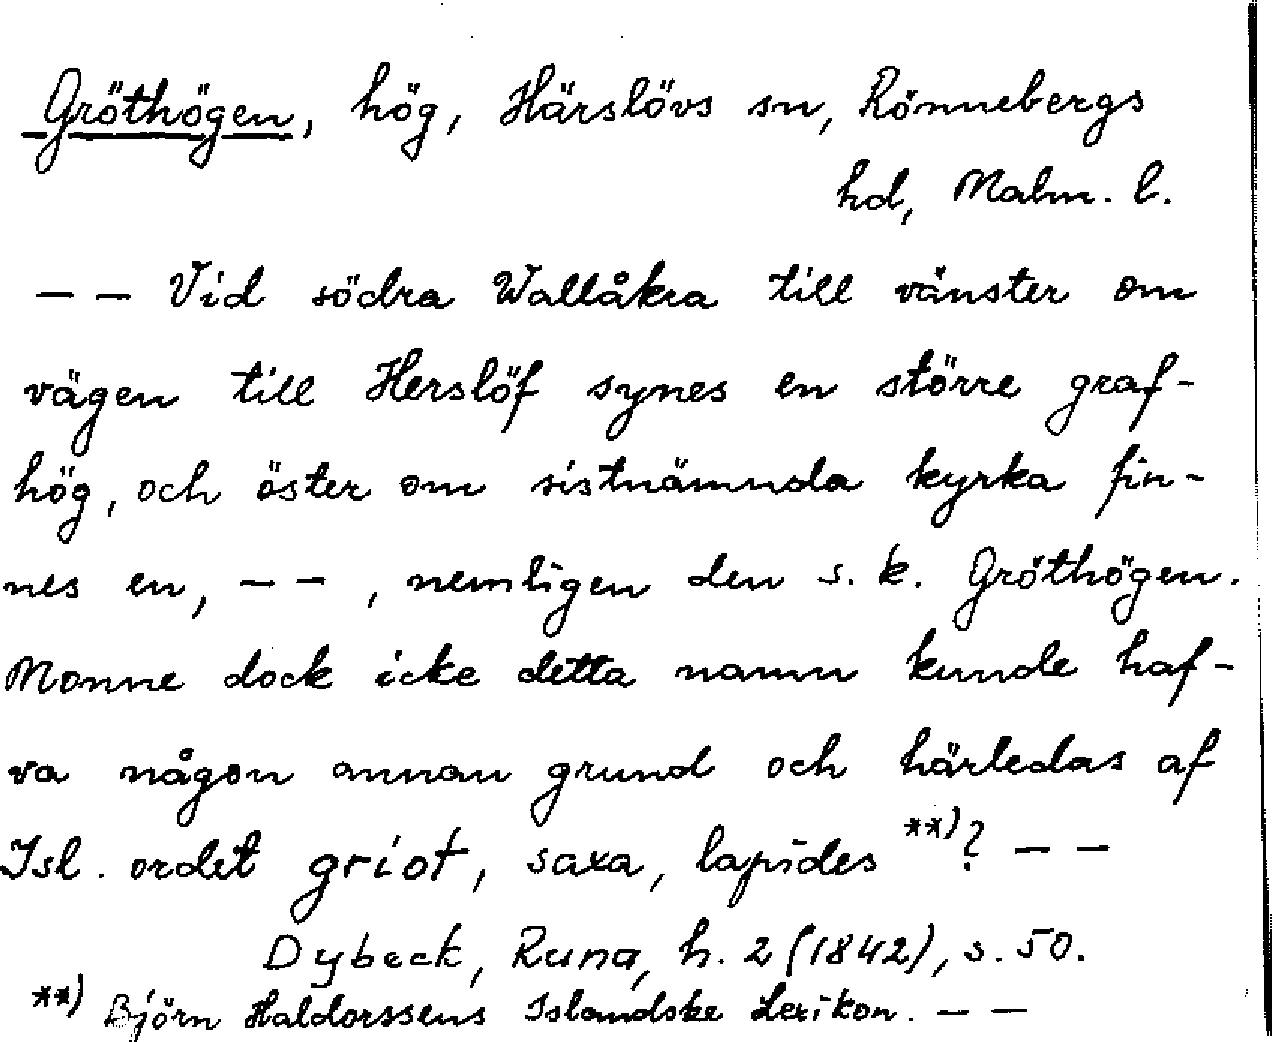 Gröthögen, hög, Härslövs sn, Rönnebergs
hd, Malm. l.
— — Vid södra Wallåkra till vänster om
vägen till Herslöf synes en större graf-
hög, och öster om sistnämnda kyrka fin-
nes en, — — , nemligen den s. k. Gröthögen.
Monne dock icke detta namn kunde haf-
va någon annan grund och härledas af
Isl. ordet griot, saxa, lapides **)? — —
Dybeck, Runa, h. 2 (1842), s. 50.
**) Björn Haldorssens Islandske Lexikon. — —